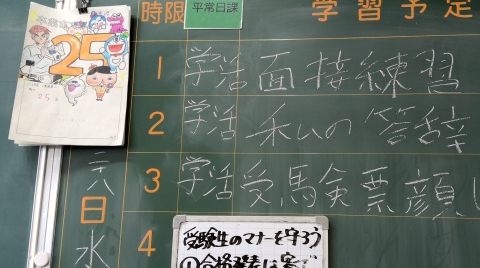 時限 平常日課 学習予定
25
25
1 学活 面接練習
2 学活 私の答辞
3 学活 受馬会票顔し
4
二八日水
受験生のマナーを守ろう
①合格発表は